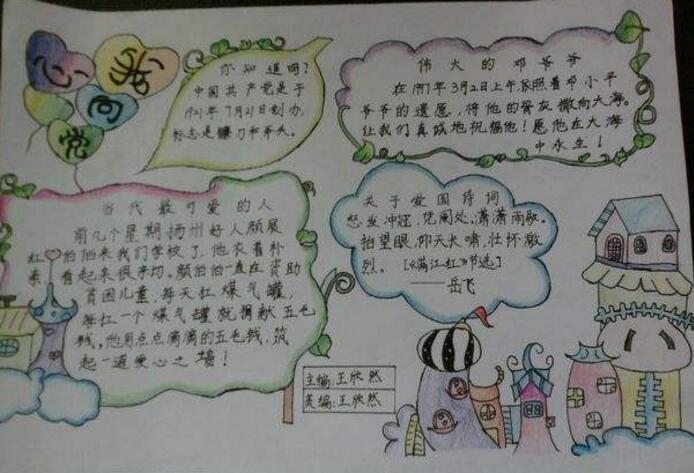 我
心
向
党
你知道吗?
中国共产党是于
1921年7月21日创办,
标志是镰刀和斧头。
伟大的邓爷爷
在1997年3月2日上午,依照着邓小平
爷爷的遗愿,将他的骨灰撒向大海。
让我们真诚地祝福他!愿他在大海
中永生!
当代最可爱的人
前几个星期,扬州好人颜展
红伯伯来我们学校了,他衣着朴
素,看起来很亲切。颜伯伯一直在资助
贫困儿童,每天扛煤气罐,
每扛一个煤气罐就捐献五毛
钱,他用点点滴滴的五毛钱,筑
起一道爱心之墙!
关于爱国诗词
怒发冲冠,凭阑处,潇潇雨歇。
抬望眼,仰天长啸,壮怀激
烈。[《满江红》节选]
——岳飞
主编:王欣然
美编:王欣然